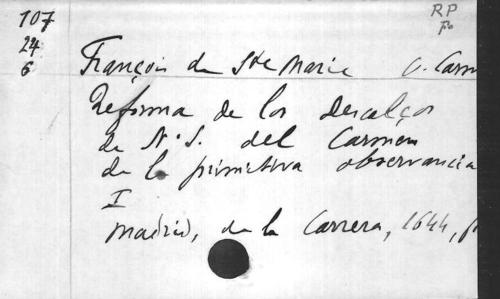 107
24
6
RP
Fo
François de Ste Marie O. Carm
Reforma de los descalços
de N. S. del Carmen
de la primitiva observancia
I
Madrid, de la Carrera, 1644, f